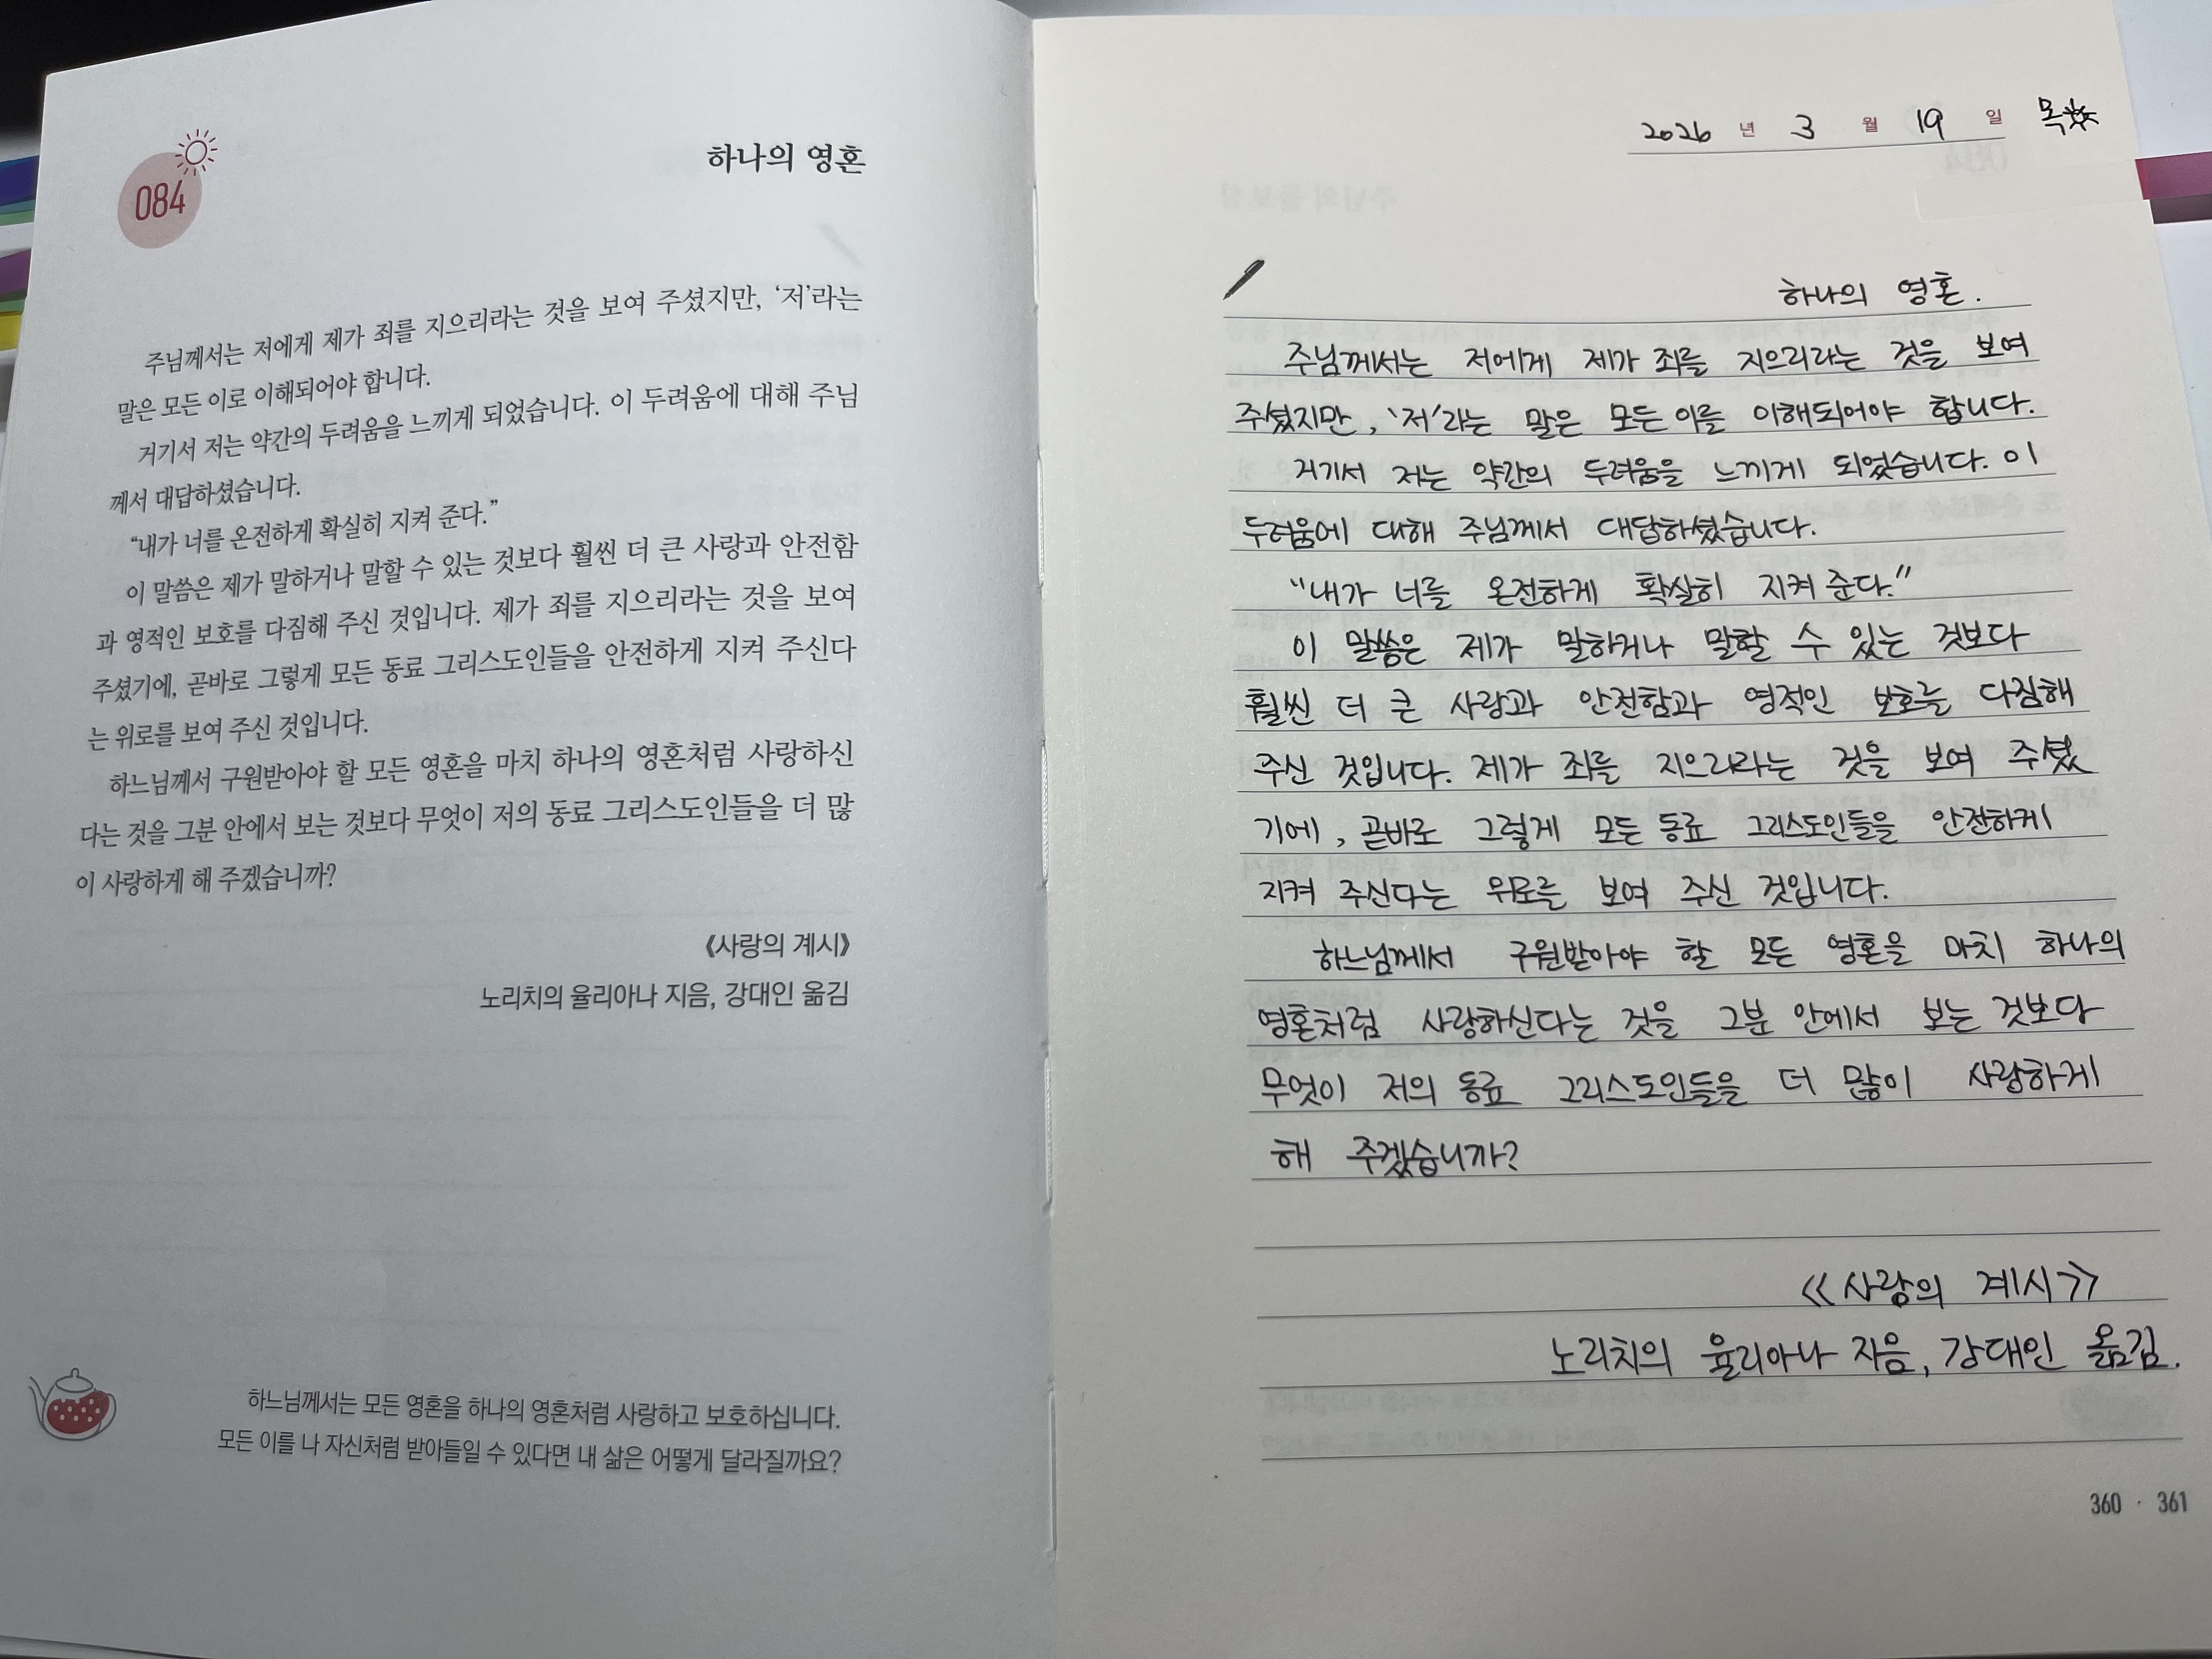 084
하나의 영혼
주님께서는 저에게 제가 죄를 지으리라는 것을 보여 주셨지만, ‘저’라는
말은 모든 이로 이해되어야 합니다.
거기서 저는 약간의 두려움을 느끼게 되었습니다. 이 두려움에 대해 주님
께서 대답하셨습니다.
“내가 너를 온전하게 확실히 지켜 준다.”
이 말씀은 제가 말하거나 말할 수 있는 것보다 훨씬 더 큰 사랑과 안전함
과 영적인 보호를 다짐해 주신 것입니다. 제가 죄를 지으리라는 것을 보여
주셨기에, 곧바로 그렇게 모든 동료 그리스도인들을 안전하게 지켜 주신다
는 위로를 보여 주신 것입니다.
하느님께서 구원받아야 할 모든 영혼을 마치 하나의 영혼처럼 사랑하신
다는 것을 그분 안에서 보는 것보다 무엇이 저의 동료 그리스도인들을 더 많
이 사랑하게 해 주겠습니까?
《사랑의 계시》
노리치의 율리아나 지음, 강대인 옮김
하느님께서는 모든 영혼을 하나의 영혼처럼 사랑하고 보호하십니다.
모든 이를 나 자신처럼 받아들일 수 있다면 내 삶은 어떻게 달라질까요?
2026 년 3 월 19 일 목
하나의 영혼.
주님께서는 저에게 제가 죄를 지으리라는 것을 보여
주셨지만, ‘저’라는 말은 모든 이를 이해되어야 합니다.
거기서 저는 약간의 두려움을 느끼게 되었습니다. 이
두려움에 대해 주님께서 대답하셨습니다.
“내가 너를 온전하게 확실히 지켜 준다.”
이 말씀은 제가 말하거나 말할 수 있는 것보다
훨씬 더 큰 사랑과 안전함과 영적인 보호를 다짐해
주신 것입니다. 제가 죄를 지으리라는 것을 보여 주셨
기에, 곧바로 그렇게 모든 동료 그리스도인들을 안전하게
지켜 주신다는 위로를 보여 주신 것입니다.
하느님께서 구원받아야 할 모든 영혼을 마치 하나의
영혼처럼 사랑하신다는 것을 그분 안에서 보는 것보다
무엇이 저의 동료 그리스도인들을 더 많이 사랑하게
해 주겠습니까?
《사랑의 계시》
노리치의 율리아나 지음, 강대인 옮김.
360 · 361